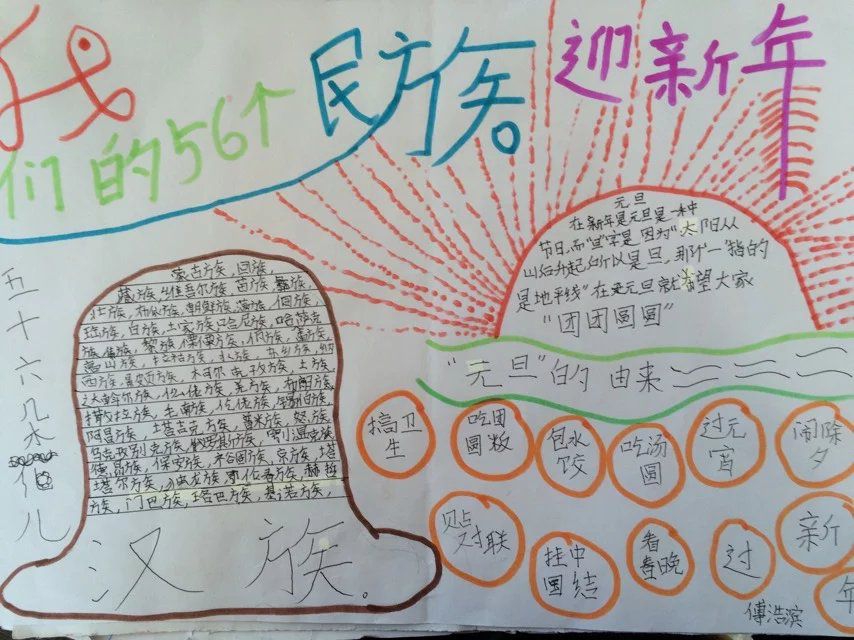 我
们的56个
民族。
迎新年
元旦
在新年是元旦是一种
节日,而"旦"字是因为"太阳从
山后升起所以是旦,那个一"指的
是地平线"在是元旦就希望大家
"团团圆圆"
"元旦"的由来
五十六
儿
蒙古族,回族,
藏族,维吾尔族,苗族,彝族,
壮族,布依族,朝鲜族,满族,侗族,
瑶族,白族,土家族,哈尼族,哈萨克
族,傣族,黎族,傈僳族,佤族,畲族,
高山族,拉祜族,水族,东乡族,纳
西族,景颇族,柯尔克孜族,土族,
达斡尔族,仫佬族,羌族,布朗族,
撒拉族,毛南族,仡佬族,锡伯族,
阿昌族,塔吉克族,普米族,怒族,
乌孜别克族,俄罗斯族,鄂温克族,
德昂族,保安族,裕固族,京族,塔
塔尔族,独龙族,鄂伦春族,赫哲
族,门巴族,珞巴族,基诺族,
汉族。
搞卫
生
吃团
圆饭
包水
饺
吃汤
圆
过元
宵
闹除
夕
贴
对联
挂中
国结
看
春晚
过
新
年
傅浩滨